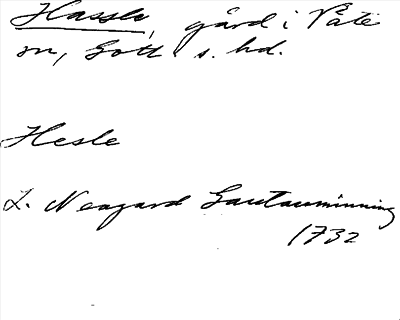 Hassle, gård i Våte
sn, Gotl s. hd.
Hesle
L. Neogard Gautauminning
1732